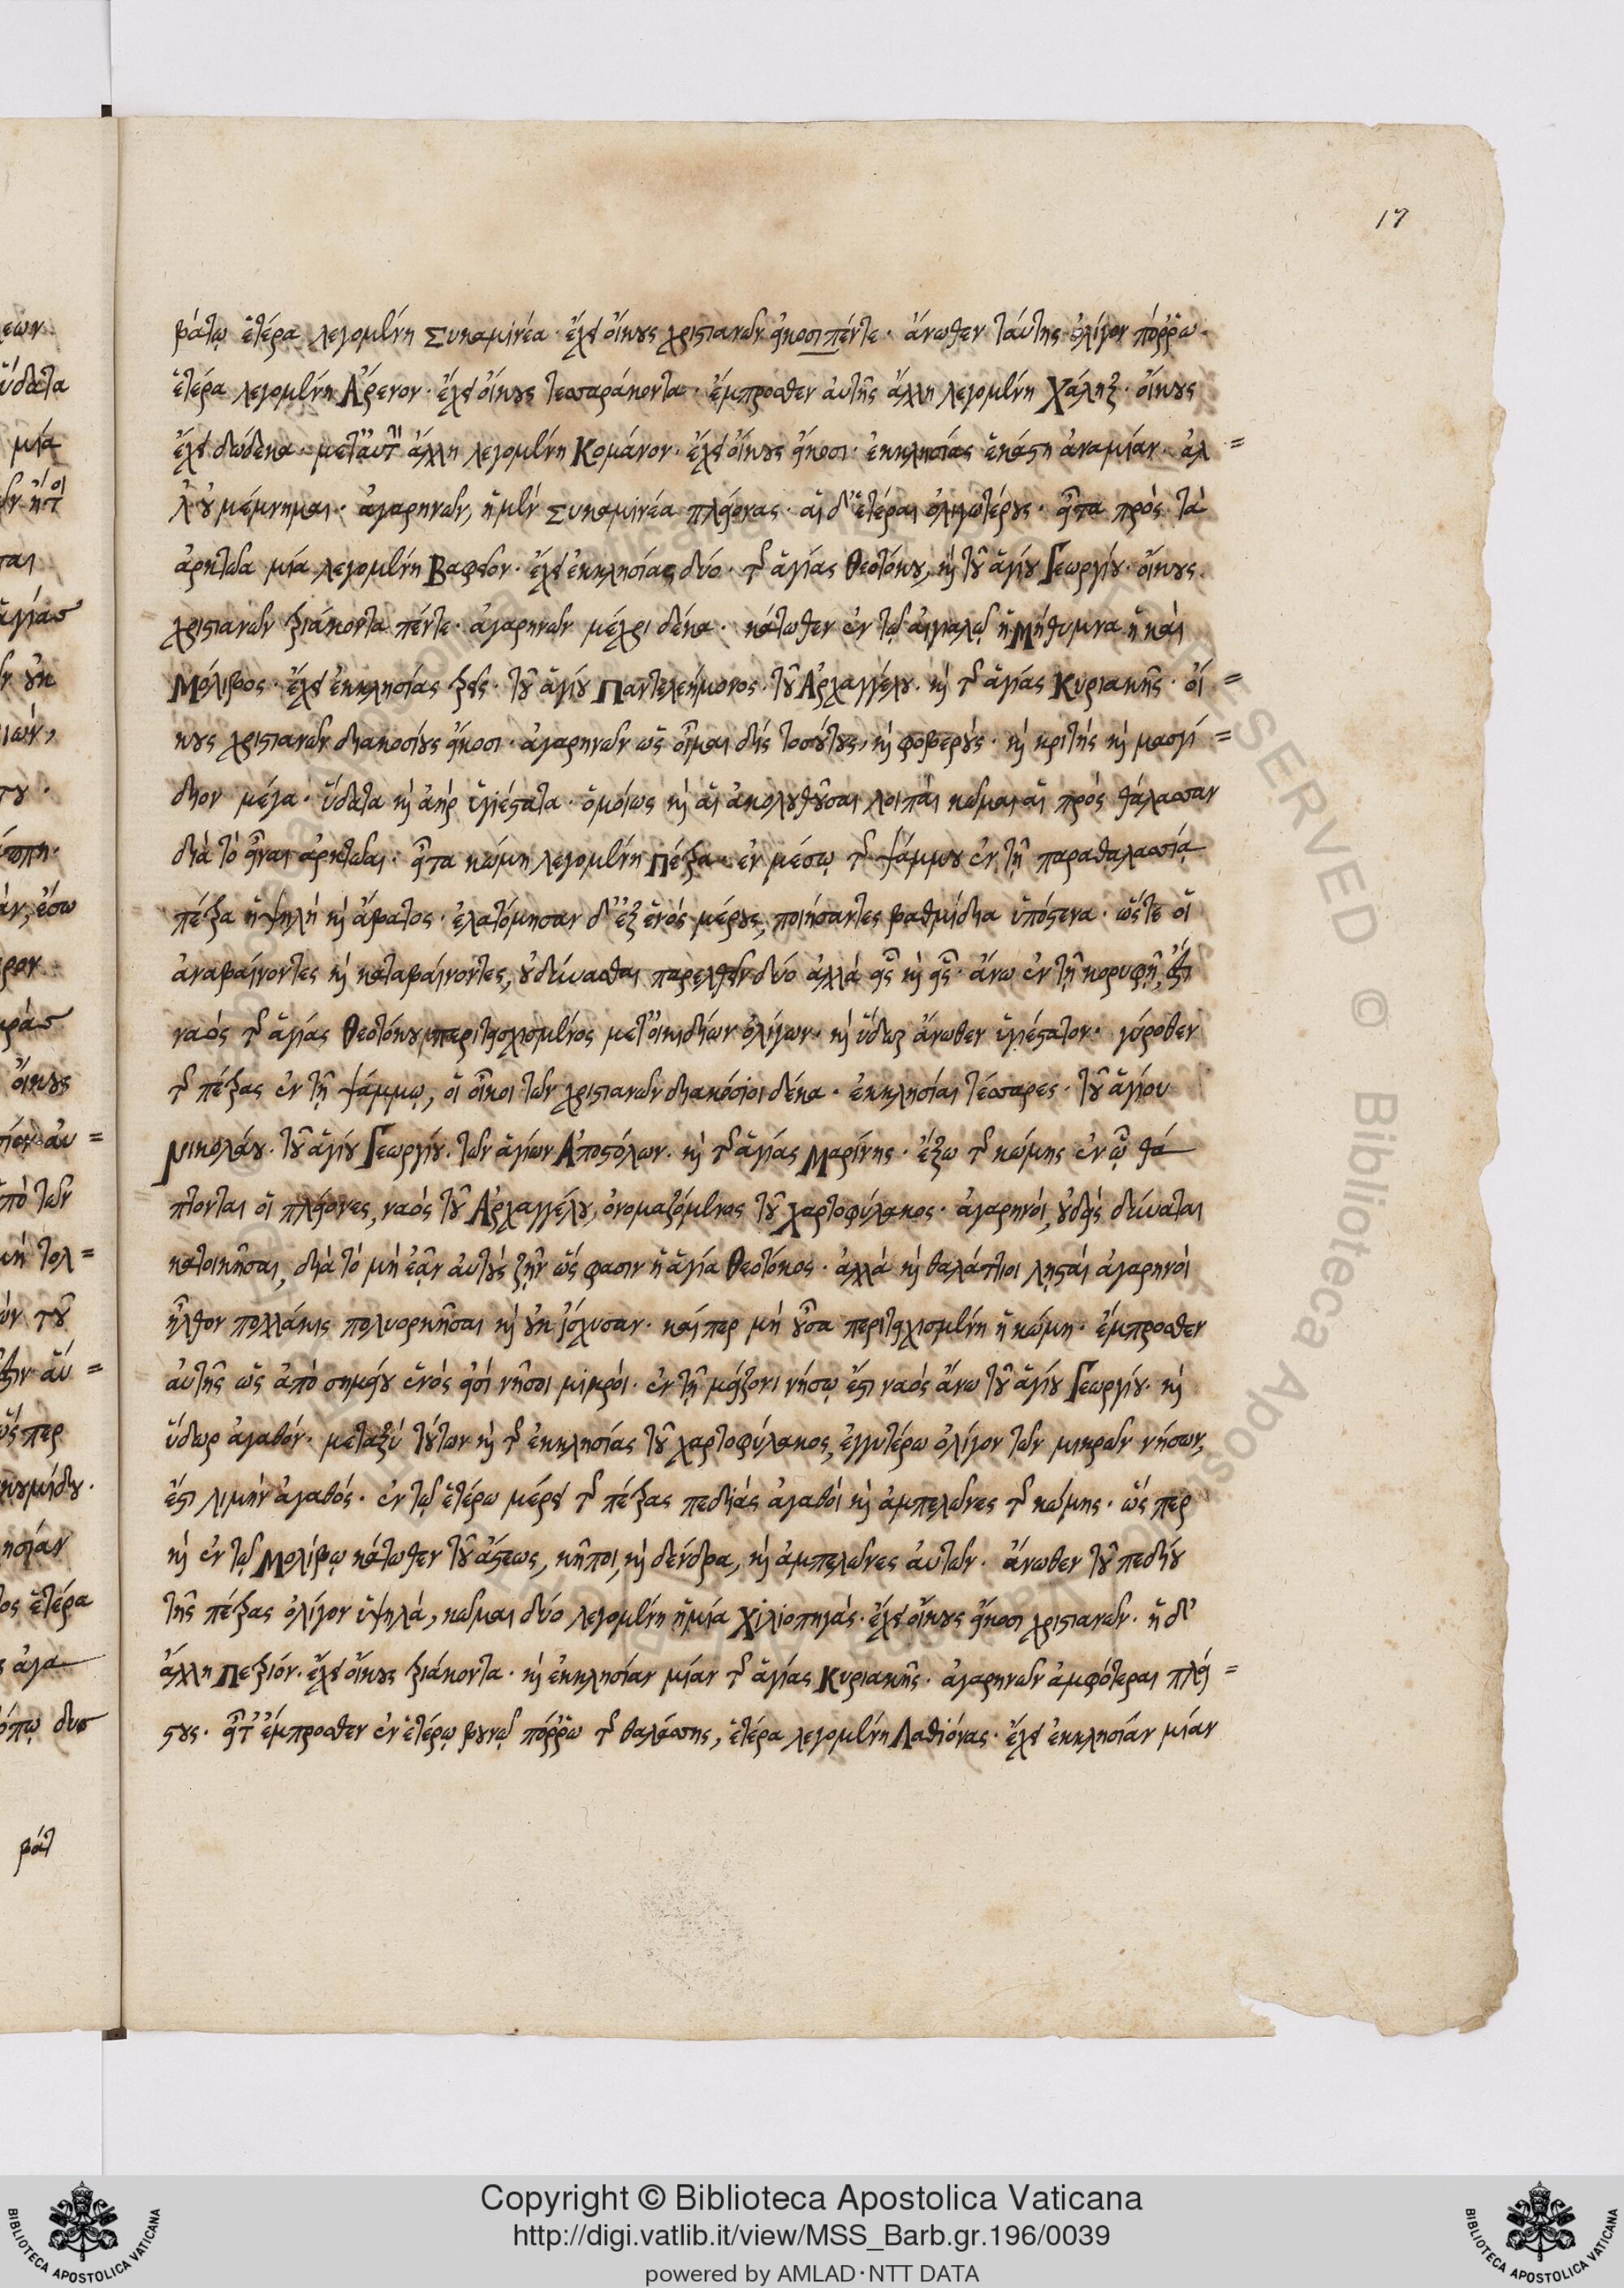 17
βάτῳ ἑτέρα λεγομένη Συκαμινέα· ἔχει οἴκους χριστιανῶν εἴκοσι πέντε· ἄνωθεν ταύτης ὀλίγον πόρρω·
ἑτέρα λεγομένη Ἄρενον· ἔχει οἴκους τεσσαράκοντα· ἔμπροσθεν αὐτῆς ἄλλη λεγομένη Χάληξ· οἴκους
ἔχει δώδεκα· μετ' αὐτὴ ἄλλη λεγομένη Κομάνον· ἔχει οἴκους εἴκοσι· ἐκκλησίας ἑκάστη ἀναμίαν· ἀλ=
λ' οὐ μέμνημαι· ἀγαρηνῶν, ἡ μὲν Συκαμινέα πλείονας· αἱ δ' ἑτέραι ὀλιγωτέρους· εἶτα πρὸς τὰ
ἀρκτῶα μία λεγομένη Βαφειον· ἔχει ἐκκλησίας δύο· τῆς ἁγίας Θεοτόκου, καὶ τοῦ ἁγίου Γεωργίου· οἴκους
χριστιανῶν τριάκοντα πέντε· ἀγαρηνῶν μέχρι δέκα· κάτωθεν ἐν τῷ αἰγιαλῷ ἡ Μήθυμνα ἢ καὶ
Μόλιβος· ἔχει ἐκκλησίας τρεῖς· τοῦ ἁγίου Παντελεήμονος· τοῦ Ἀρχαγγέλου· καὶ τῆς ἁγίας Κυριακῆς· οἴ=
κους χριστιανῶν διακοσίους εἴκοσι· ἀγαρηνῶν ὡς οἶμαι δὶς τοσούτους, καὶ φοβερούς· καὶ κριτής καὶ μασγί=
διον μέγα· ὕδατα καὶ ἀὴρ ὑγιέστατα· ὁμοίως καὶ αἱ ἀκολουθοῦσαι λοιπαὶ κῶμαι αἱ πρὸς θάλασσαν
διὰ τὸ εἶναι ἀρκτῶαι· εἶτα κώμη λεγομένη Πέτρα· ἐν μέσῳ τῆς ψάμμου ἐν τῇ παραθαλασσίᾳ
πέτρα ὑψηλὴ καὶ ἄβατος· ἐλατόμησαν δ' ἐξ ἑνὸς μέρους, ποιήσαντες βαθμίδια ὑπόστενα· ὥστε οἱ
ἀναβαίνοντες καὶ καταβαίνοντες, οὐ δύνασθαι παρελθεῖν δύο ἀλλὰ εἷς καὶ εἷς· ἄνω ἐν τῇ κορυφῇ, ἔστι
ναὸς τῆς ἁγίας Θεοτόκου περιτειχισμένος μετ' οἰκιδίων ὀλίγων· καὶ ὕδωρ ἄνωθεν ὑγιέστατον· γύροθεν
τῆς πέτρας ἐν τῇ ψάμμῳ, οἱ οἶκοι τῶν χριστιανῶν διακόσιοι δέκα· ἐκκλησίαι τέσσαρες· τοῦ ἁγίου
Νικολάου· τοῦ ἁγίου Γεωργίου· τῶν ἁγίων Ἀποστόλων· καὶ τῆς ἁγίας Μαρίνης· ἔξω τῆς κώμης ἐν ᾧ θά
πτονται οἱ πλείονες, ναὸς τοῦ Ἀρχαγγέλου, ὀνομαζόμενος τοῦ χαρτοφύλακος· ἀγαρηνοί, οὐδεὶς δύναται
κατοικῆσαι, διὰ τὸ μὴ ἐᾶν αὐτοὺς ζῆν ὥς φασιν ἡ ἁγία Θεοτόκος· ἀλλὰ καὶ θαλάττιοι λῃσταὶ ἀγαρηνοὶ
ἦλθον πολλάκις πολυορκῆσαι καὶ οὐκ ἴσχυσαν· καίπερ μὴ οὖσα περιτειχισμένη ἡ κώμη· ἔμπροσθεν
αὐτῆς ὡς ἀπὸ σημείου ἑνὸς εἰσὶ νῆσοι μικροί· ἐν τῇ μείζονι νήσῳ ἔστι ναὸς ἄνω τοῦ ἁγίου Γεωργίου· καὶ
ὕδωρ ἀγαθόν· μεταξὺ τούτων καὶ τῆς ἐκκλησίας τοῦ χαρτοφύλακος, ἐγγυτέρω ὀλίγον τῶν μικρῶν νήσων,
ἔστι λιμὴν ἀγαθός· ἐν τῷ ἑτέρω μέρει τῆς πέτρας πεδιὰς ἀγαθοὶ καὶ ἀμπελῶνες τῆς κώμης· ὥς περ
καὶ ἐν τῷ Μολίβῳ κάτωθεν τοῦ ἄστεως, κῆποι, καὶ δένδρα, καὶ ἀμπελῶνες αὐτῶν· ἄνωθεν τοῦ πεδίου
τῆς πέτρας ὀλίγον ὑψηλά, κῶμαι δύο λεγομένη ἡ μία Χιλιοπηγάς· ἔχει οἴκους εἴκοσι χριστιανῶν· ἡ δ'
ἄλλη Πετριόν· ἔχει οἴκους τριάκοντα· καὶ ἐκκλησίαν μίαν τῆς ἁγίας Κυριακῆς· ἀγαρηνῶν ἀμφότεραι πλεί=
στους· εἶτ' ἔμπροσθεν ἐν ἑτέρῳ βουνῷ πόρρω τῆς θαλάσσης, ἑτέρα λεγομένη Λαθιόνας· ἔχει ἐκκλησίαν μίαν
Copyright © Biblioteca Apostolica Vaticana
http://digi.vatlib.it/view/MSS_Barb.gr.196/0039
powered by AMLAD·NTT DATA